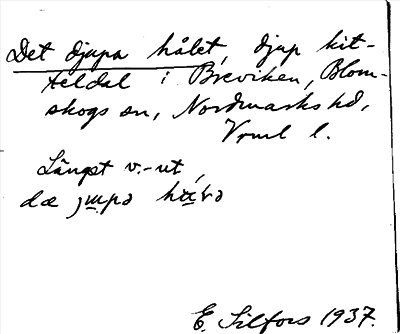 Det djupa hålet, djup kit-
teldal i Breviken, Blom-
skogs sn, Nordmarks hd,
Vrml l.
Längst v.-ut,
dæ jupa
E. Silfors 1937.